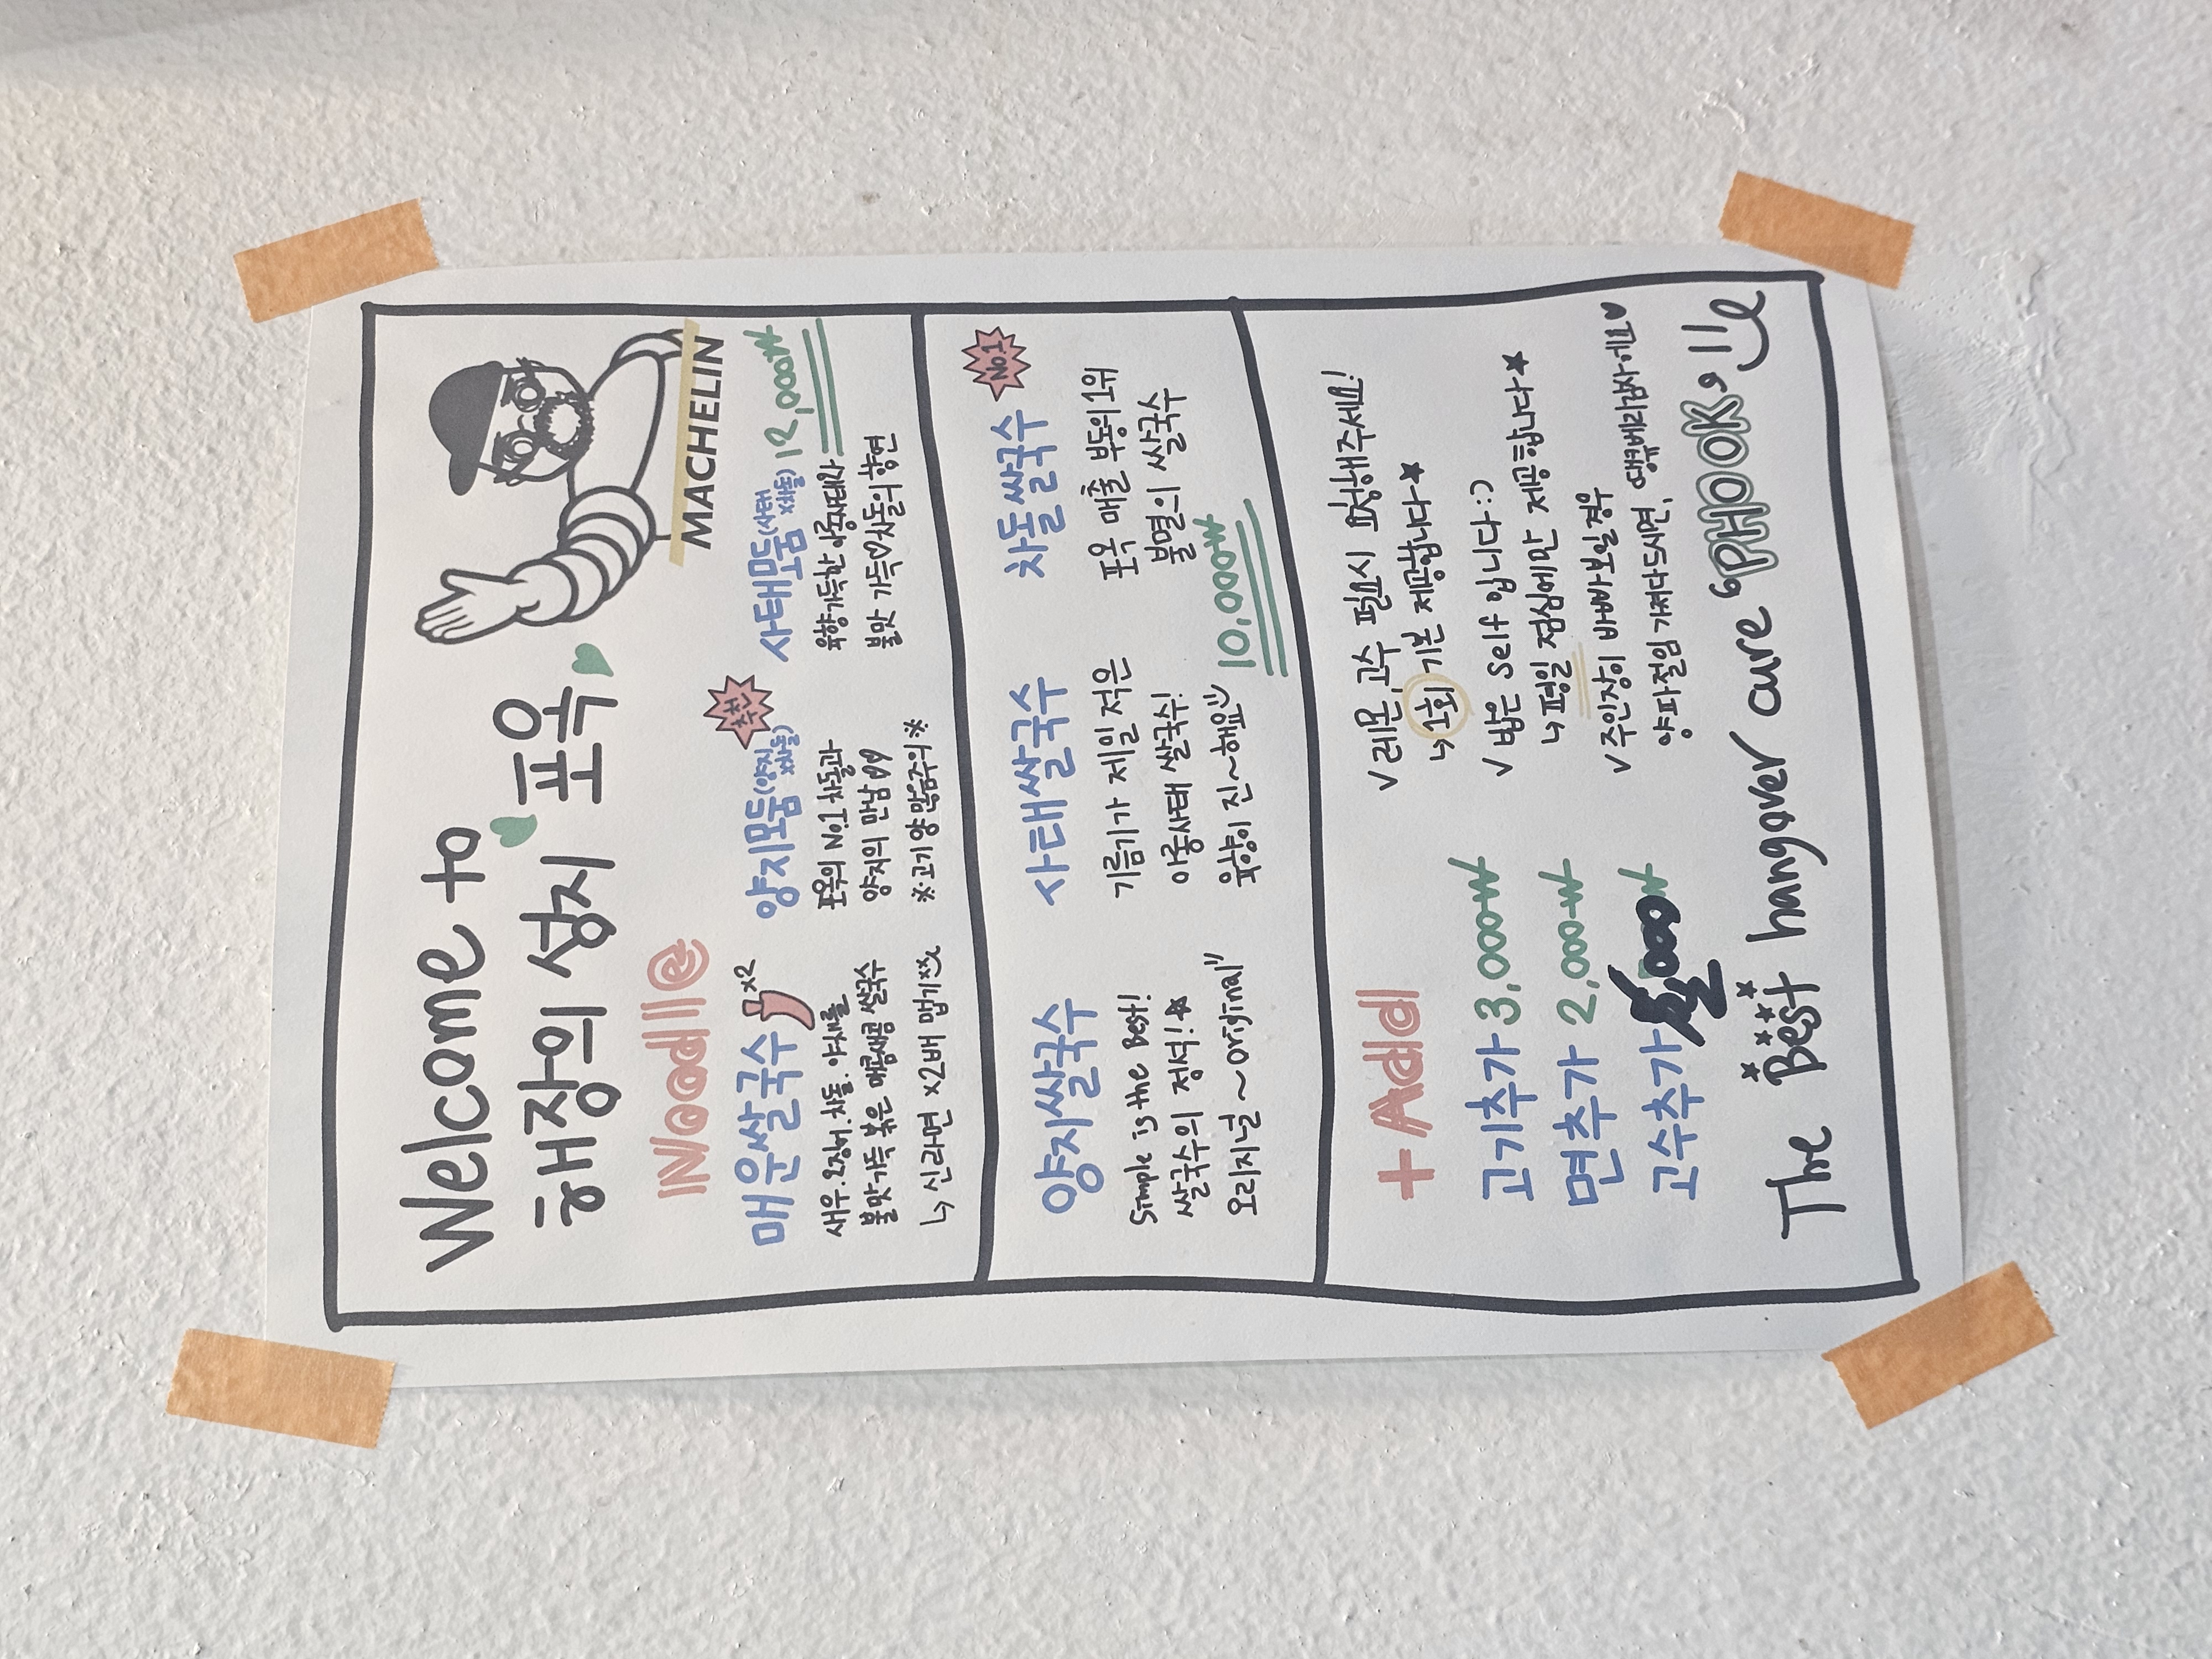 Welcome to
해장의 성지 포옥
MACHELIN
Noodle
매운쌀국수 x2
새우.오징어.차돌.야채를
불맛가득 볶은 매콤새콤 쌀국수
↳ 신라면 x2배 맵기
양지모둠(양지x차돌) 추천
포옥의 No.1 차돌과
양지의 만남♡♡
※고기 양 많음주의※
사태모둠(사태x차돌) 12,000₩
육향가득한 아롱사태와
불맛 가득♡차돌의 향연
양지쌀국수
Simple is the Best!
쌀국수의 정석!★
오리지널~original"
사태쌀국수
기름기가 제일 적은
아롱사태 쌀국수!
육향이 진~해요
차돌쌀국수 No.1
포옥 매출 부동의 1위
불멸의 쌀국수
10,000₩
+ Add
고기추가 3,000₩
면추가 2,000₩
고수추가 000₩
✓레몬,고수 필요시 요청해주세요!
↳1회 기본 제공합니다★
✓밥은 self 입니다:)
↳평일 점심에만 제공합니다★
✓주인장이 바빠보일경우
양파절임 가져다드시면, 땡큐베리감사예요♥
The Best hangover cure "PHOOK"